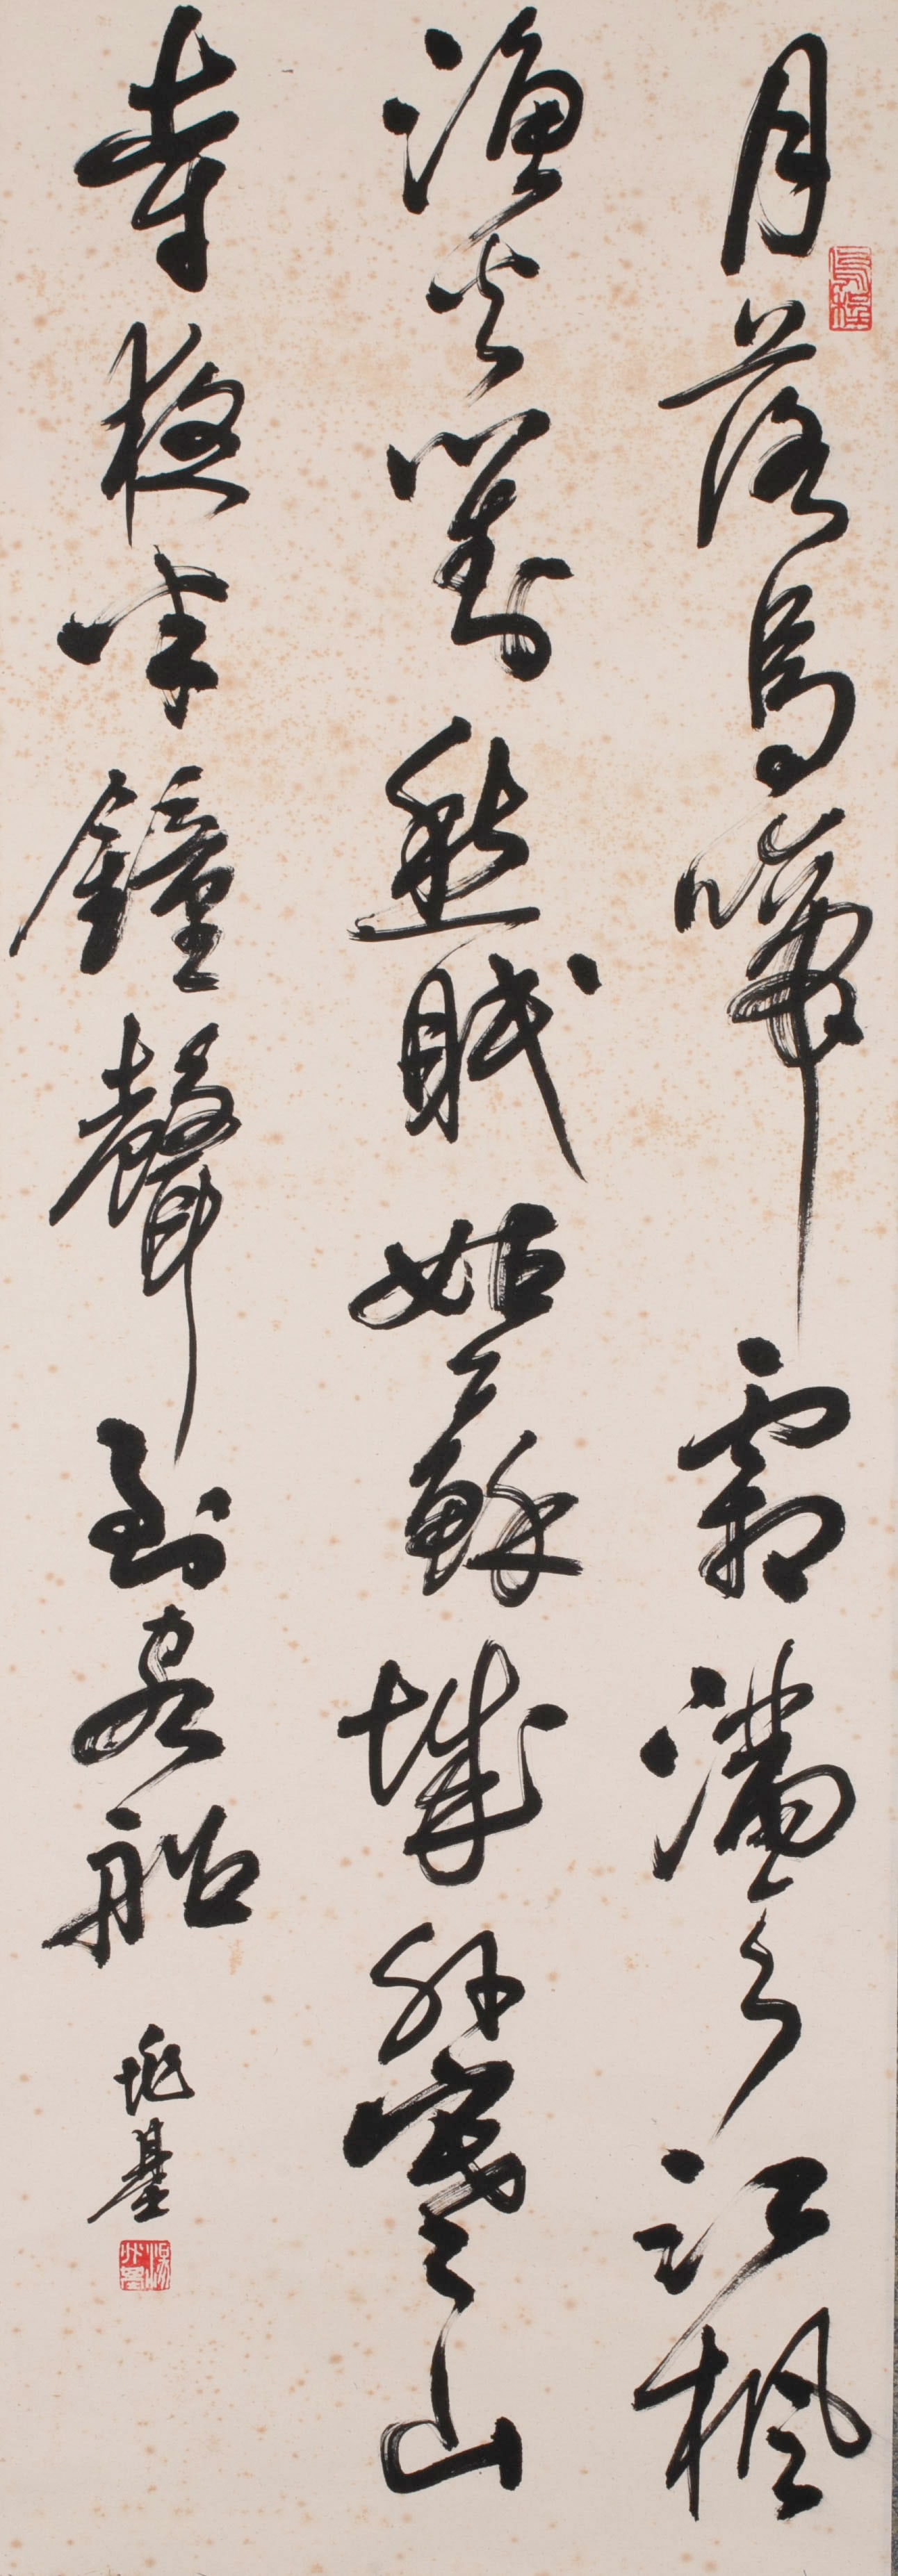 月落烏啼霜滿天江楓
漁火對愁眠姑蘇城外寒山
寺夜半鐘聲到客船
兆基